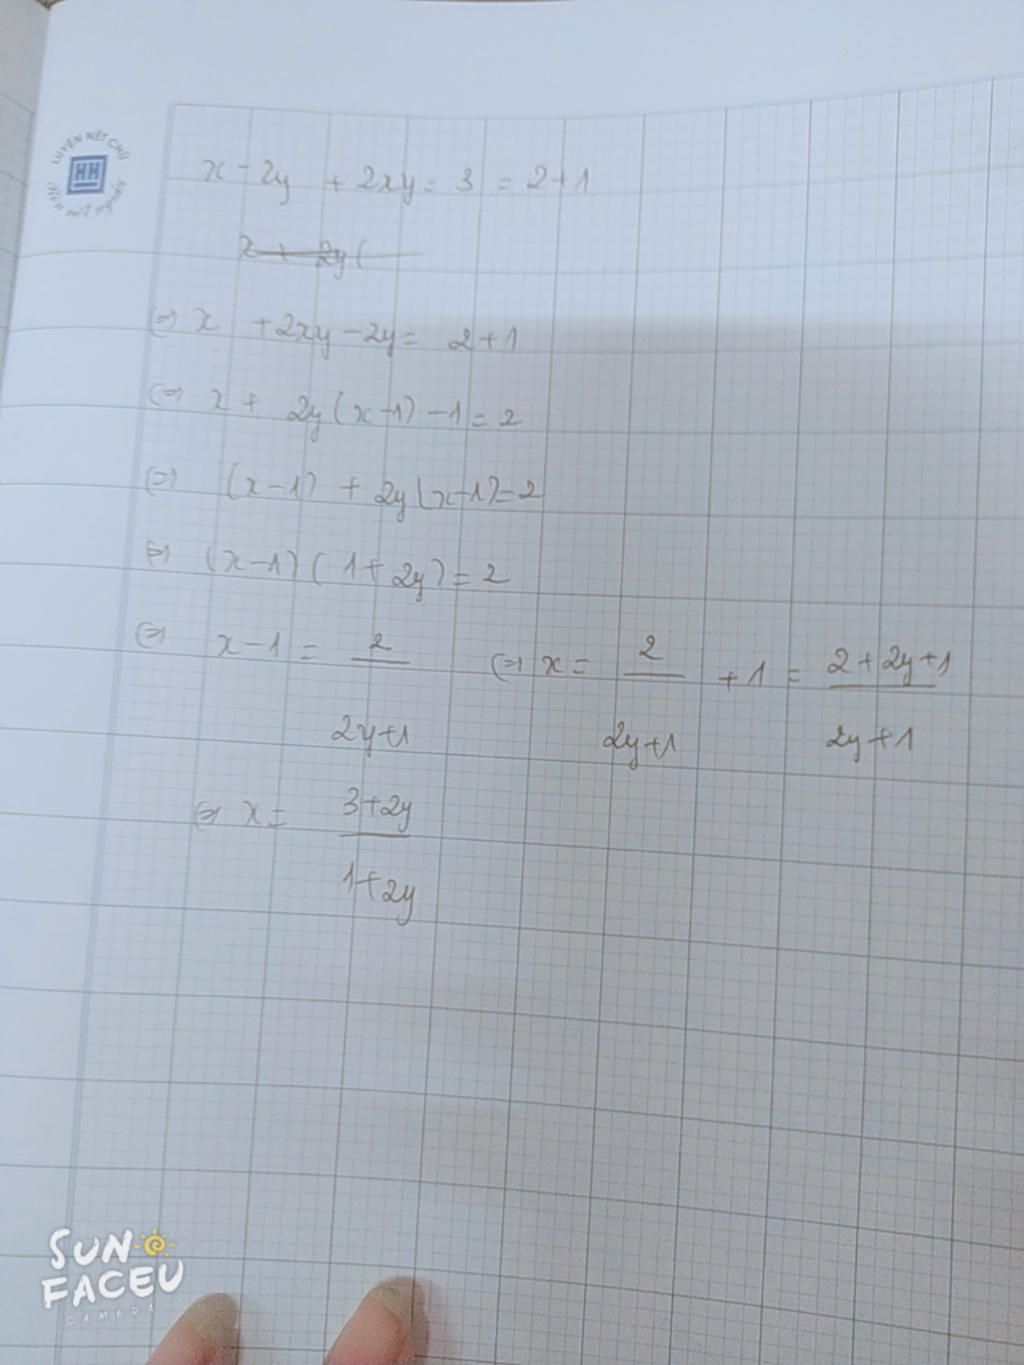 LUYỆN NÉT CHỮ
HH
x - 2y + 2xy = 3 = 2+1
(=) x + 2xy - 2y = 2+1
(=) x + 2y(x-1) - 1 = 2
(=) (x-1) + 2y(x-1) = 2
(=) (x-1)(1+2y) = 2
(=) x-1 = 2/2y+1 (=) x = 2/2y+1 + 1 = 2+2y+1/2y+1
(=) x = 3+2y/1+2y
SUN
FACEU
CAMERA